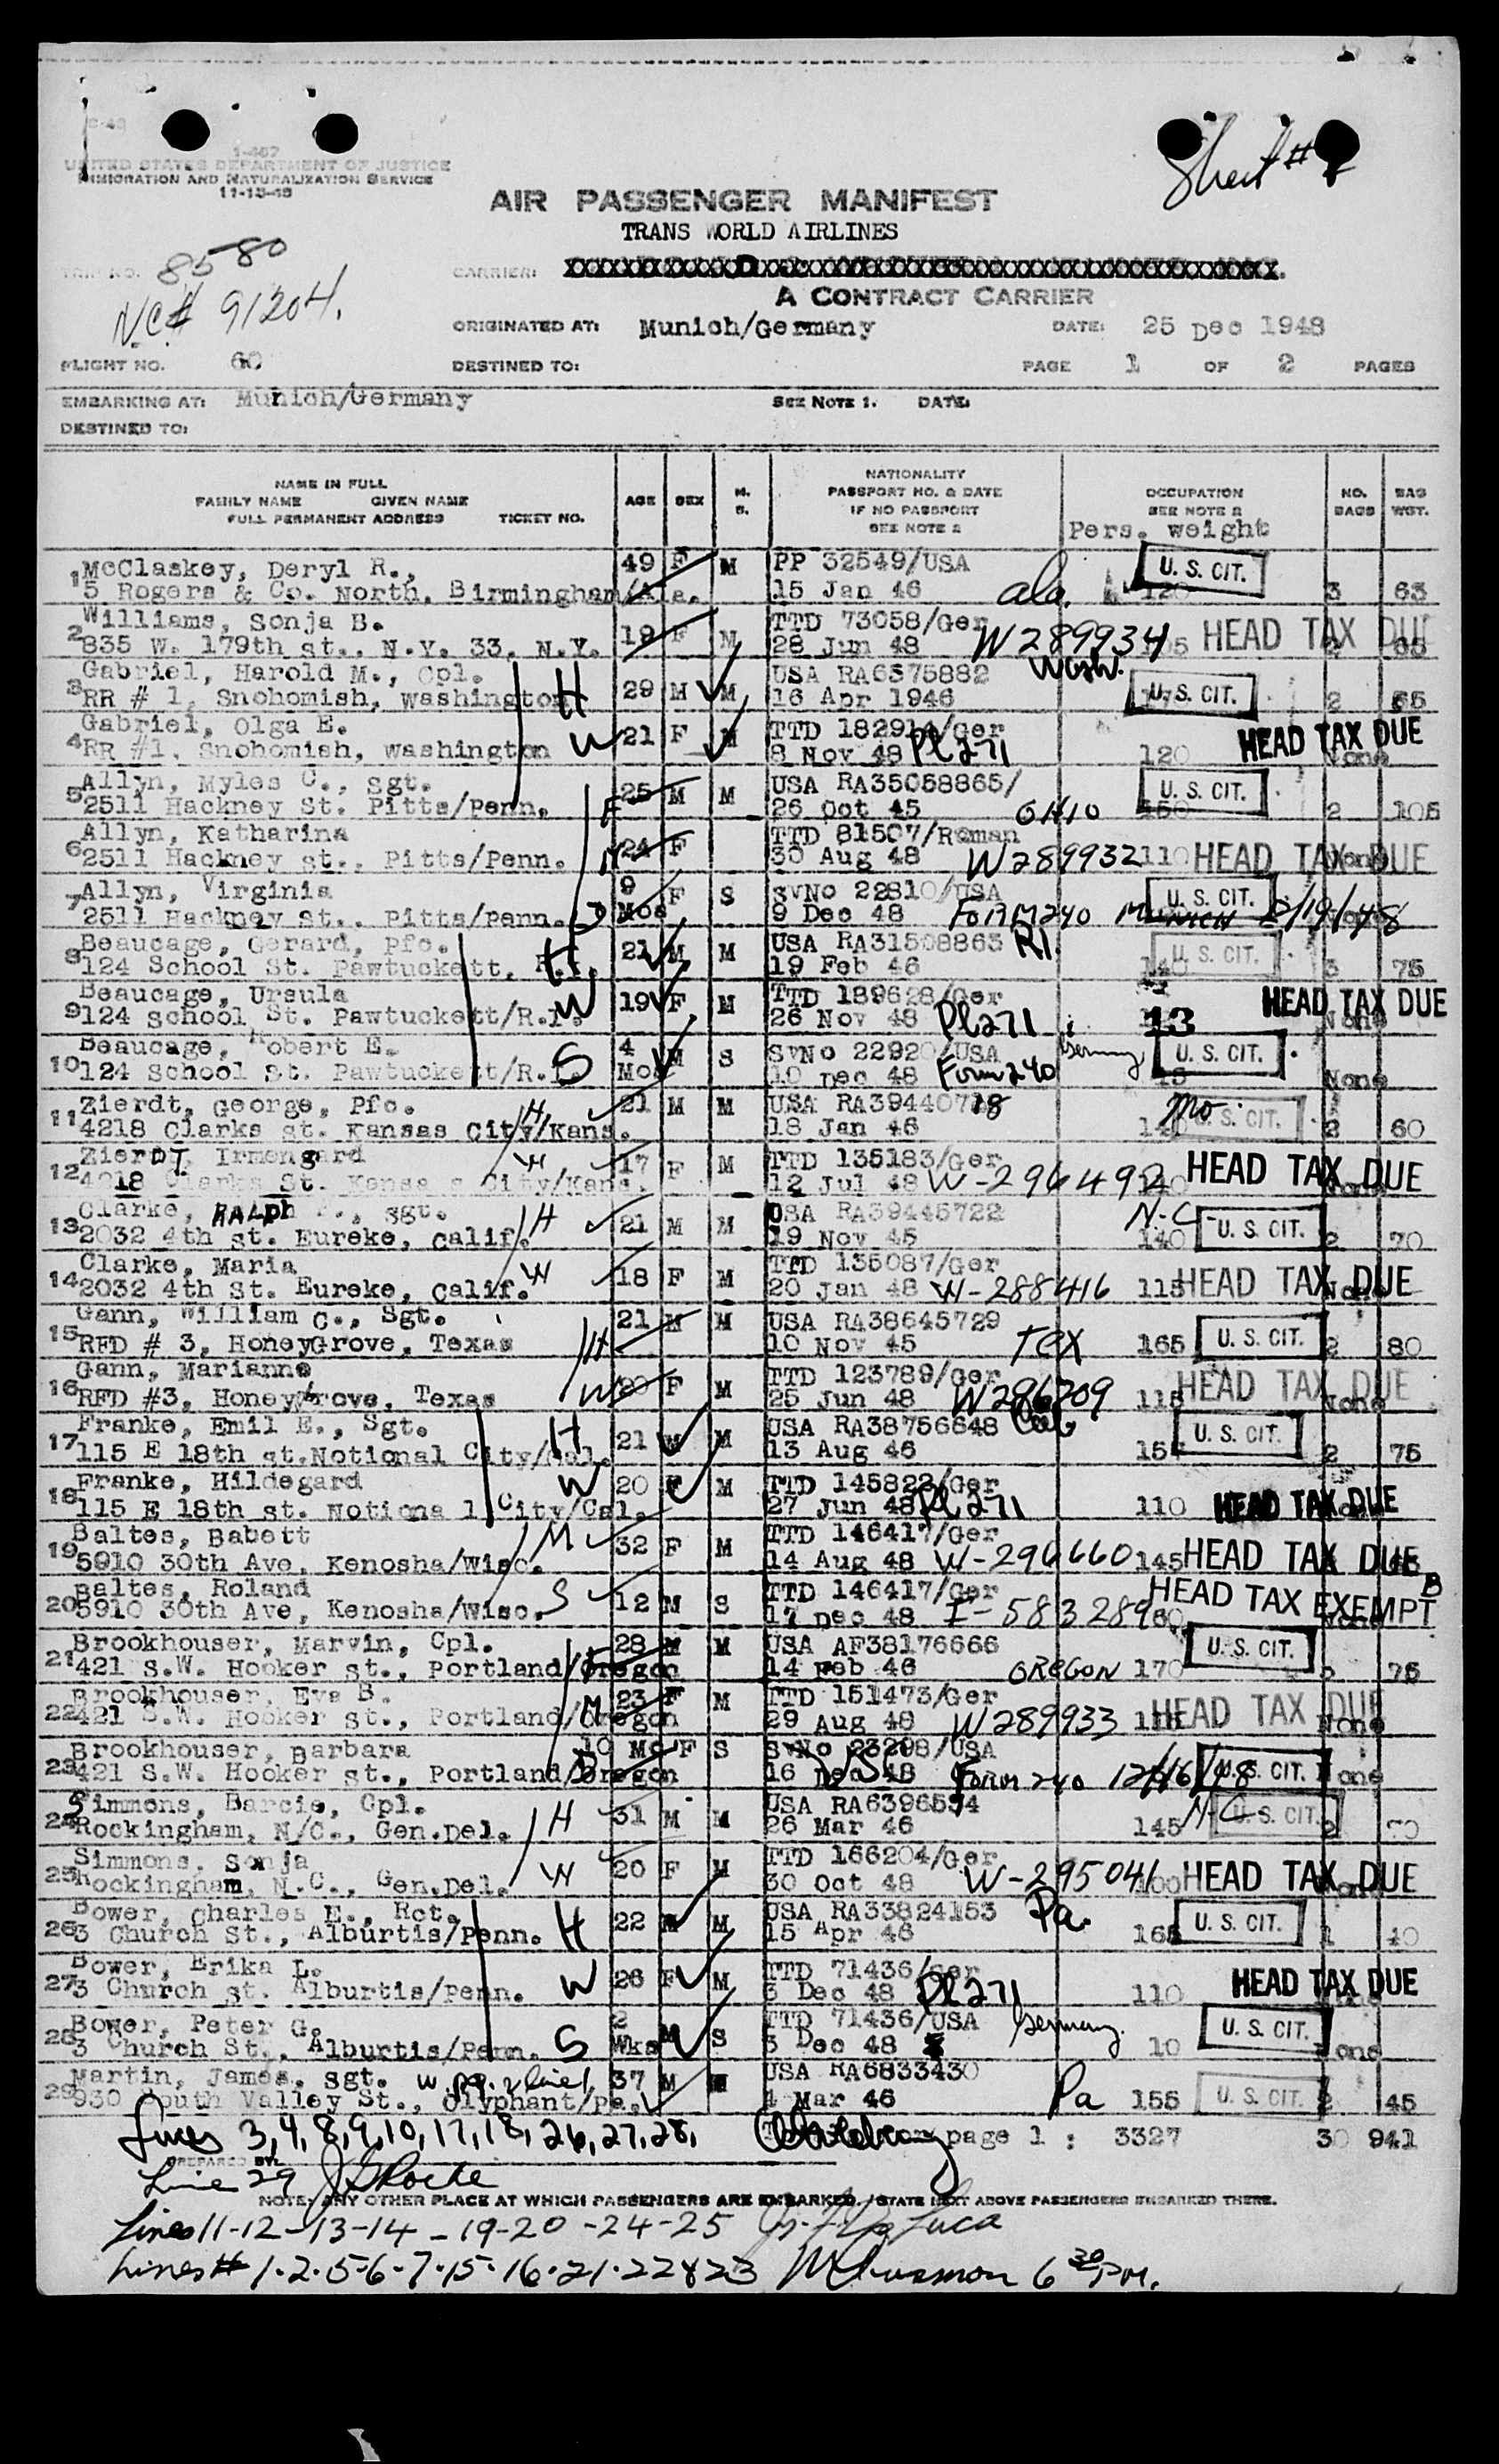 C-49
I-467
UNITED STATES DEPARTMENT OF JUSTICE
IMMIGRATION AND NATURALIZATION SERVICE
11-13-45
Sheet #
AIR PASSENGER MANIFEST
TRANS WORLD AIRLINES
8580
CARRIER:
NC# 91204.
A CONTRACT CARRIER
ORIGINATED AT: Munich/Germany DATE: 25 Dec 1948
FLIGHT NO. 60 DESTINED TO: PAGE 1 OF 2 PAGES
EMBARKING AT: Munich/Germany SEE NOTE 1. DATE:
DESTINED TO:
NAME IN FULL
FAMILY NAME GIVEN NAME
FULL PERMANENT ADDRESS TICKET NO.
AGE SEX M. S.
NATIONALITY
PASSPORT NO. & DATE
IF NO PASSPORT
SEE NOTE 2
OCCUPATION
SEE NOTE 2
Pers. weight
NO. BAGS
BAG WGT.
1 McClaskey, Deryl R., 49 F M PP 32549/USA U. S. CIT.
5 Rogers & Co. North, Birmingham/Ala. 15 Jan 46 Ala. 120 3 63
2 Williams, Sonja B. 19 F M TTD 73058/Ger HEAD TAX DUE
835 W. 179th st., N.Y. 33, N.Y. 28 Jun 48 W289934 65
3 Gabriel, Harold M., Cpl. H 29 M M USA RA6375882 Wash. U. S. CIT.
RR # 1, Snohomish, Washington 16 Apr 1946 2 55
4 Gabriel, Olga E. W 21 F M TTD 182914/Ger HEAD TAX DUE
RR #1, Snohomish, Washington 8 Nov 48 Pl271 120 None
5 Allyn, Myles C., Sgt. 25 M M USA RA35058865/ U. S. CIT.
2511 Hackney St. Pitts/Penn. F 26 Oct 45 OHIO 150 2 105
6 Allyn, Katharina 24 F TTD 81507/Roman HEAD TAX DUE
2511 Hackney st., Pitts/Penn. M 30 Aug 48 W289932 110 None
7 Allyn, Virginia 9 Mos F S SvNo 22810/USA U. S. CIT.
2511 Hackney st., Pitts/Penn. D 9 Dec 48 Form 240 MUNICH None
8 Beaucage, Gerard, Pfc. H 21 M M USA RA31508863 RI. U. S. CIT.
124 School St. Pawtuckett, R.I. 19 Feb 46 140 3 75
9 Beaucage, Ursula W 19 F M TTD 189628/Ger HEAD TAX DUE
124 School St. Pawtuckett/R.I. 26 Nov 48 Pl271 13 None
10 Beaucage, Robert E. S 4 Mos M S SvNo 22920/USA Germany U. S. CIT.
124 School st. Pawtuckett/R.I. 10 Dec 48 Form 240 None
11 Zierdt, George, Pfc. H 21 M M USA RA39440718 Mo. U. S. CIT.
4218 Clarks st. Kansas City/Kans. 18 Jan 46 2 60
12 Zierdt, Irmengard W 17 F M TTD 135183/Ger HEAD TAX DUE
4218 Clarks St. Kansas City/Kans. 12 Jul 48 W-296492 None
13 Clarke, RALph, Sgt. H 21 M M USA RA39445722 N-C- U. S. CIT.
2032 4th st. Eureke, Calif. 19 Nov 45 140 2 70
14 Clarke, Maria W 18 F M TTD 135087/Ger HEAD TAX DUE
2032 4th St. Eureke, Calif. 20 Jan 48 W-288416 115 None
15 Gann, William C., Sgt. 21 M M USA RA38645729 U. S. CIT.
RFD # 3, HoneyGrove, Texas H 10 Nov 45 Tex 165 2 80
16 Gann, Marianne W 20 F M TTD 123789/Ger HEAD TAX DUE
RFD #3, HoneyGrove, Texas 25 Jun 48 W286209 115 None
17 Franke, Emil E., Sgt. H 21 M M USA RA38756648 Cal. U. S. CIT.
115 E 18th st.Notional City/Cal. 13 Aug 46 2 75
18 Franke, Hildegard W 20 F M TTD 145822/Ger HEAD TAX DUE
115 E 18th st. Notional City/Cal. 27 Jun 48 Pl271 110 None
19 Baltes, Babett M 32 F M TTD 146417/Ger HEAD TAX DUE
5910 30th Ave, Kenosha/Wisc. 14 Aug 48 W-296660 145
20 Baltes, Roland S 12 M S TTD 146417/Ger HEAD TAX EXEMPT B
5910 30th Ave, Kenosha/Wisc. 17 Dec 48 I-583289 None
21 Brookhouser, Marvin, Cpl. 28 M M USA AF38176666 U. S. CIT.
421 S.W. Hooker st., Portland/Oregon 14 Feb 46 OREGON 170 75
22 Brookhouser, Eva B. M 23 F M TTD 151473/Ger HEAD TAX DUE
421 S.W. Hooker st., Portland/Oregon 29 Aug 48 W289933 None
23 Brookhouser, Barbara 10 Mo F S SvNo 23298/USA U. S. CIT.
421 S.W. Hooker st., Portland/Oregon D 16 Dec 48 Form 240 12/16/48 None
24 Simmons, Barcie, Cpl. H 31 M M USA RA6396554 N-C U. S. CIT.
Rockingham, N/C., Gen.Del. 26 Mar 46 145 2 70
25 Simmons, Sonja W 20 F M TTD 166204/Ger HEAD TAX DUE
Rockingham, N.C., Gen.Del. 30 Oct 48 W-295041 100 None
26 Bower, Charles E., Rct. H 22 M M USA RA33824153 Pa. U. S. CIT.
3 Church St., Alburtis/Penn. 15 Apr 46 165 1 40
27 Bower, Erika L. W 26 F M TTD 71436/Ger HEAD TAX DUE
3 Church st. Alburtis/Penn. 3 Dec 48 Pl271 110
28 Bower, Peter G. S 2 Wks M S TTD 71436/USA Germany. U. S. CIT.
3 Church St., Alburtis/Penn. 3 Dec 48 10 None
29 Martin, James, Sgt. 37 M M USA RA6833430 U. S. CIT.
930 South Valley St., Olyphant/Pa. 4 Mar 46 Pa 155 2 45
Lines 3,4,8,9,10,17,18,26,27,28, page 1 : 3327 30 941
PREPARED BY:
Line 29
NOTE: ANY OTHER PLACE AT WHICH PASSENGERS ARE EMBARKED, STATE NEXT ABOVE PASSENGERS EMBARKED THERE.
Lines 11-12-13-14-19-20-24-25
Lines # 1-2-5-6-7-15-16-21-22&23 6 30 PM.